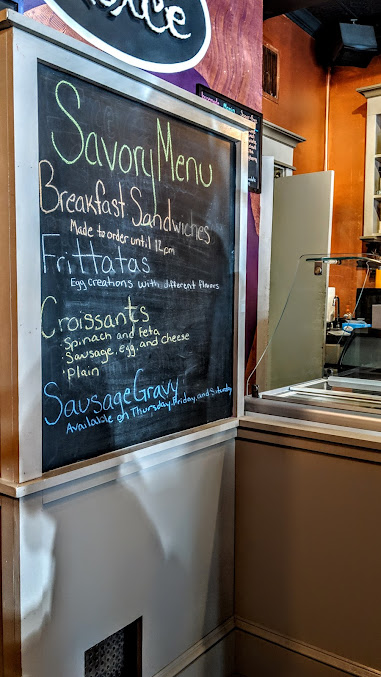 Savory Menu
Breakfast Sandwiches
Made to order until 12pm
Frittatas
Egg creations with different flavors
Croissants
· Spinach and Feta
· Sausage, egg, and cheese
· Plain
Sausage Gravy
Available on Thursday, Friday, and Saturday